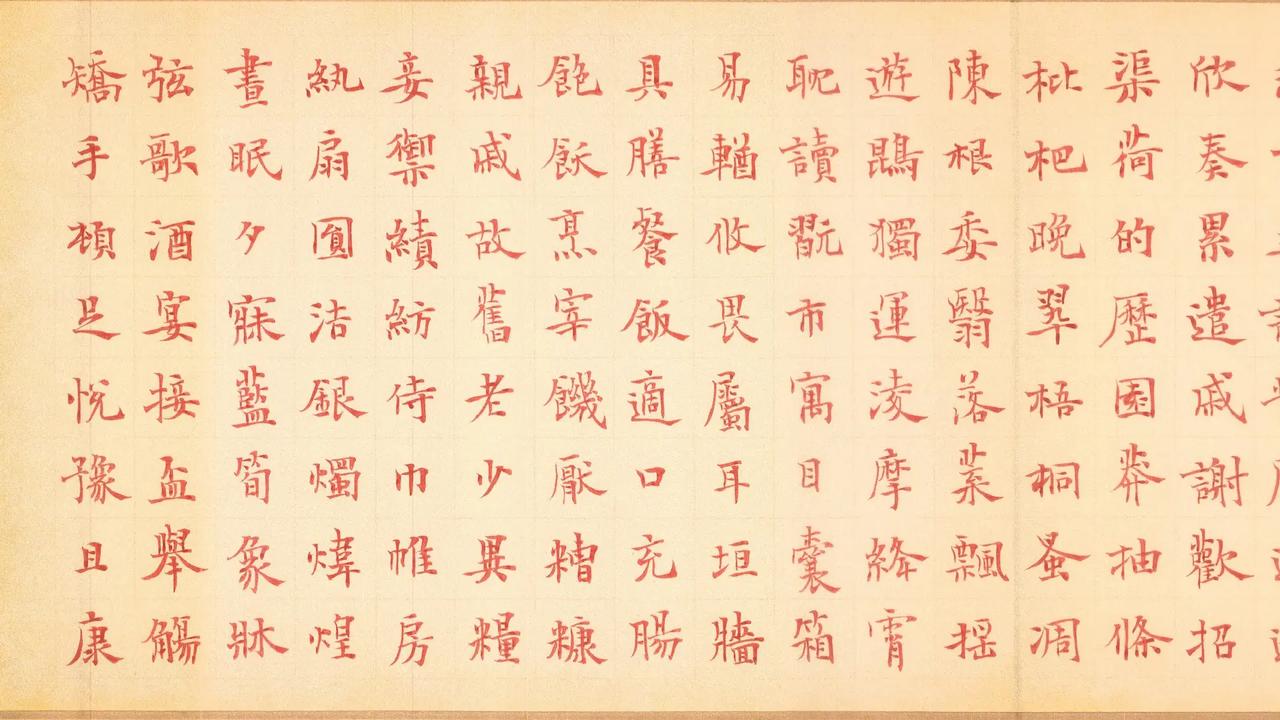 欣奏累遣戚謝歡招
渠荷的歷園莽抽條
枇杷晚翠梧桐蚤凋
陳根委翳落葉飄搖
遊鵾獨運淩摩絳霄
耽讀翫市寓目囊箱
易輶攸畏屬耳垣牆
具膳餐飯適口充腸
飽飫烹宰饑厭糟糠
親戚故舊老少異糧
妾禦績紡侍巾帷房
紈扇圓洁銀燭煒煌
晝眠夕寐藍筍象牀
弦歌酒宴接盃舉觴
矯手頓足悅豫且康